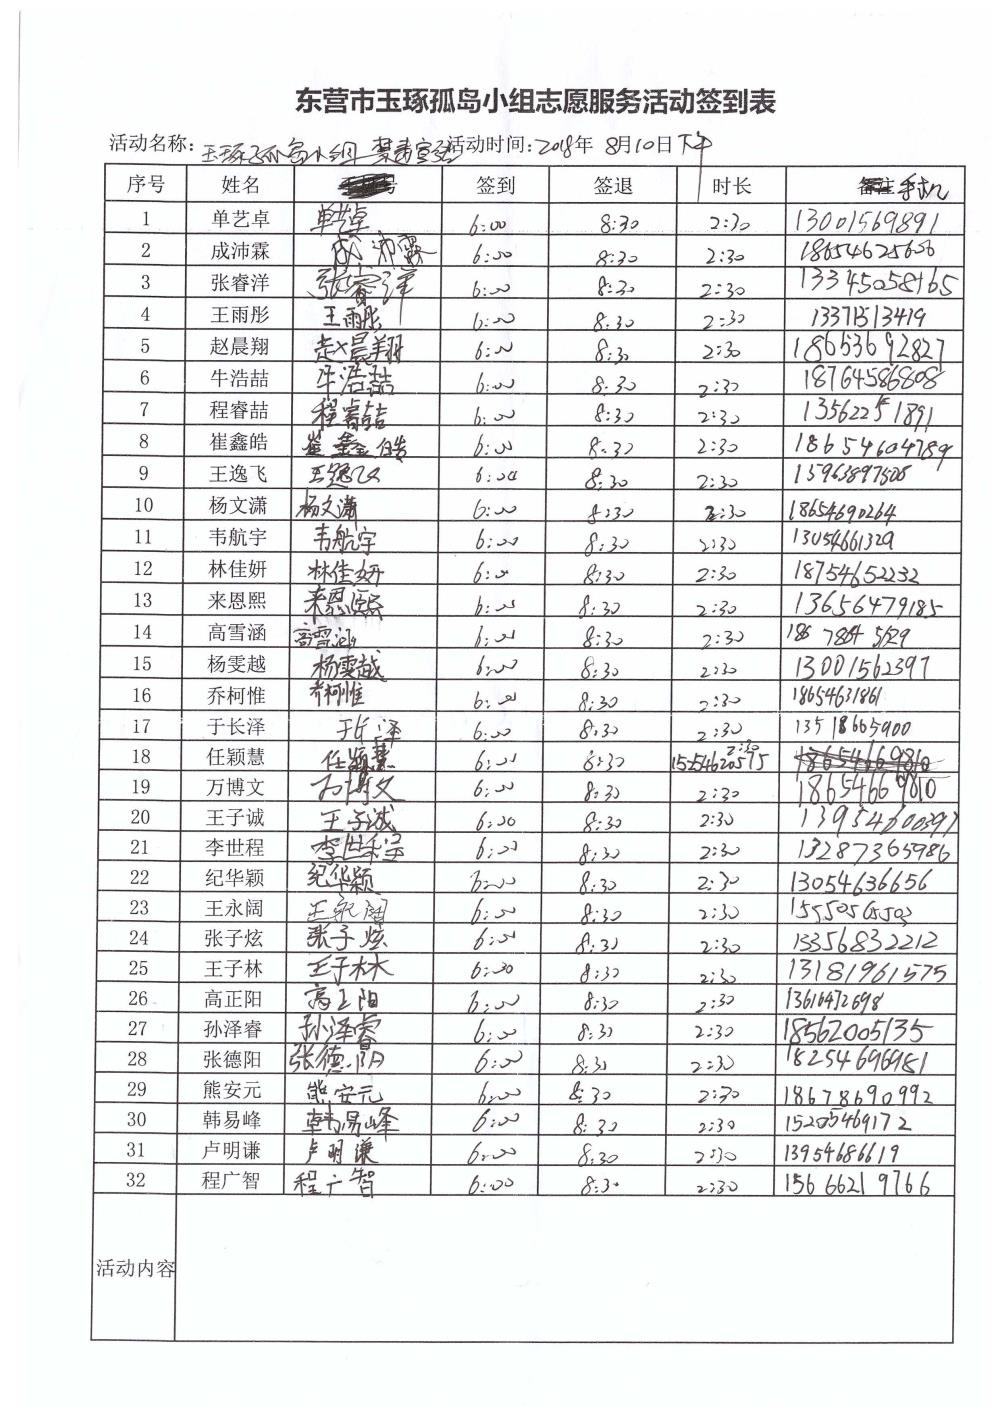 东营市玉琢孤岛小组志愿服务活动签到表
活动名称: 玉琢孤岛小组 活动时间: 2018年 8月10日下午
序号 姓名 签到 签退 时长 备注 手机
1 单艺卓 单艺卓 6:00 8:30 2:30 13001569891
2 成沛霖 成沛霖 6:00 8:30 2:30 18654625606
3 张睿洋 张睿洋 6:00 8:30 2:30 13345058165
4 王雨彤 王雨彤 6:00 8:30 2:30 13371513419
5 赵晨翔 赵晨翔 6:00 8:30 2:30 18653692827
6 牛浩喆 牛浩喆 6:00 8:30 2:30 18764586808
7 程睿喆 程睿喆 6:00 8:30 2:30 13562251891
8 崔鑫皓 崔鑫皓 6:00 8:30 2:30 18654604789
9 王逸飞 王逸飞 6:00 8:30 2:30 15963897508
10 杨文潇 杨文潇 6:00 8:30 2:30 18654690264
11 韦航宇 韦航宇 6:00 8:30 2:30 13054661329
12 林佳妍 林佳妍 6:00 8:30 2:30 18754652232
13 来恩熙 来恩熙 6:00 8:30 2:30 13656479185
14 高雪涵 高雪涵 6:00 8:30 2:30
15 杨雯越 杨雯越 6:00 8:30 2:30 13001562397
16 乔柯惟 乔柯惟 6:00 8:30 2:30 18654631861
17 于长泽 于长泽 6:00 8:30 2:30 13518665900
18 任颖慧 任颖慧 6:00 8:30 2:30 15254620575 18654669810
19 万博文 万博文 6:00 8:30 2:30 18654669810
20 王子诚 王子诚 6:00 8:30 2:30 13954600397
21 李世程 李世程 6:00 8:30 2:30 13287365986
22 纪华颖 纪华颖 6:00 8:30 2:30 13054636656
23 王永阔 王永阔 6:00 8:30 2:30
24 张子炫 张子炫 6:00 8:30 2:30 13356832212
25 王子林 王子林 6:00 8:30 2:30 13181961575
26 高正阳 高正阳 6:00 8:30 2:30 13616472698
27 孙泽睿 孙泽睿 6:00 8:30 2:30 18562005135
28 张德阳 张德阳 6:00 8:30 2:30 18254696981
29 熊安元 熊安元 6:00 8:30 2:30 18678690992
30 韩易峰 韩易峰 6:00 8:30 2:30 15205469172
31 卢明谦 卢明谦 6:00 8:30 2:30 13954686619
32 程广智 程广智 6:00 8:30 2:30 15666219766
活动内容